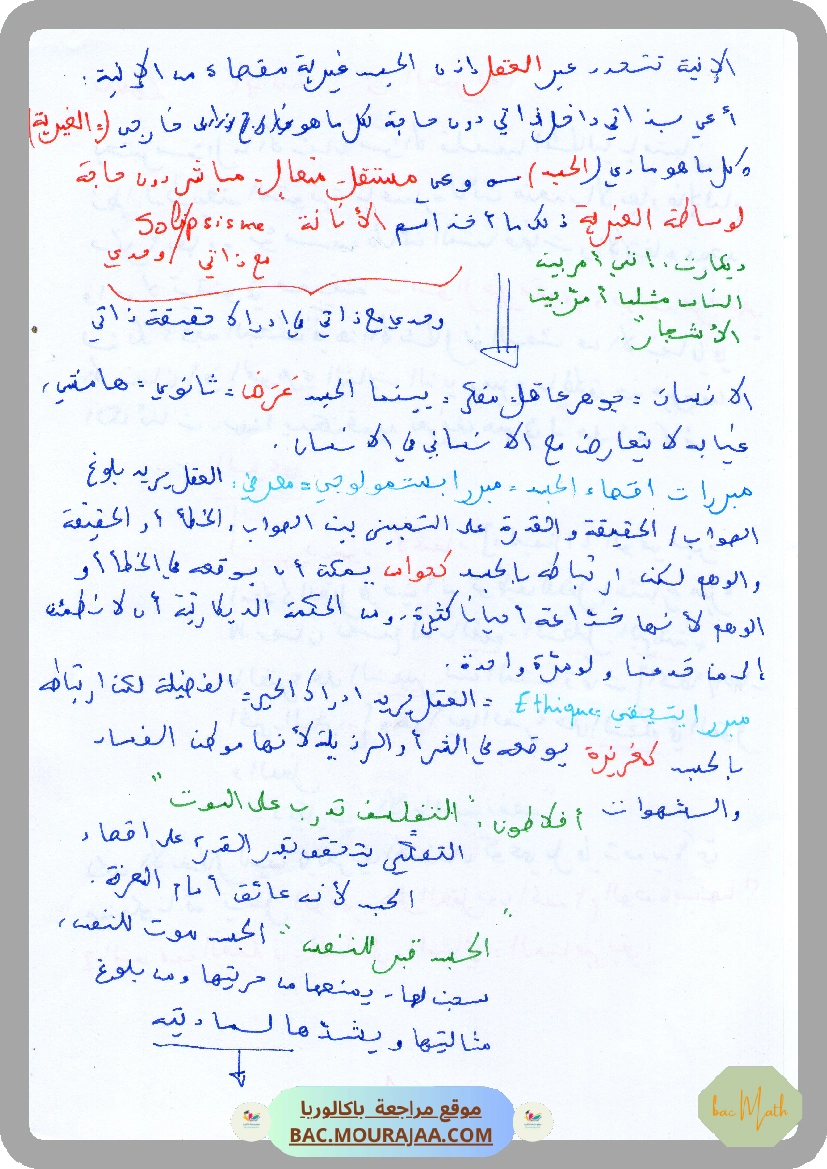 الإنية تتحدد عبر العقل إذن الجسد غيرية مقصاة من الإنية.
أعي بذاتي داخل ذاتي دون حاجة لكل ما هو خارجي (= الغيرية)
كل ما هو مادي (الجسد) وعي مستقل - متعال - مباشر دون حاجة
لوساطة الغيرية ذلك ما أخذ اسم الأنانة Solipsisme
مع ذاتي / وحدي
ديكارت: إنني أمر بين
الناس مثلما أمر بين
الأشجار".
وحدي مع ذاتي في إدراك حقيقة ذاتي
الانسان = جوهر عاقل = مفكر = بينما الجسد عرض = ثانوي = هامشي،
غيابه لا يتعارض مع الانساني في الانسان.
مبررات اقصاء الجسد = مبرر ابستمولوجي = معرفي: العقل يريد بلوغ
الصواب / الحقيقة والقدرة على التمييز بين الصواب والخطأ أو الحقيقة
والوهم لكن ارتباطه بالجسد كحواس يمكن أن يوقعه في الخطأ أو
الوهم لأنها خدّاعة أحيانا كثيرة، ومن الحكمة الديكارتية أن لا نطمئن
إلى من خدعنا ولو مرّة واحدة.
مبرر ايتيقي Ethique = العقل يريد ادراك الخير = الفضيلة لكن ارتباطه
بالجسد كغريزة يوقعه في الشر أو الرذيلة لأنها موطن الفساد
والشهوات أفلاطون: "التفلسف تدرب على الموت"
التعقل يتحقق بقدر القدرة على اقصاء
الجسد لأنه عائق أمام المعرفة.
"الجسد قبر للنفس": الجسد موت للنفس،
سجن لها - يمنعها من حريتها ومن بلوغ
مثاليتها ويشدّها لماديته
موقع مراجعة باكالوريا
BAC.MOURAJAA.COM
bac Math